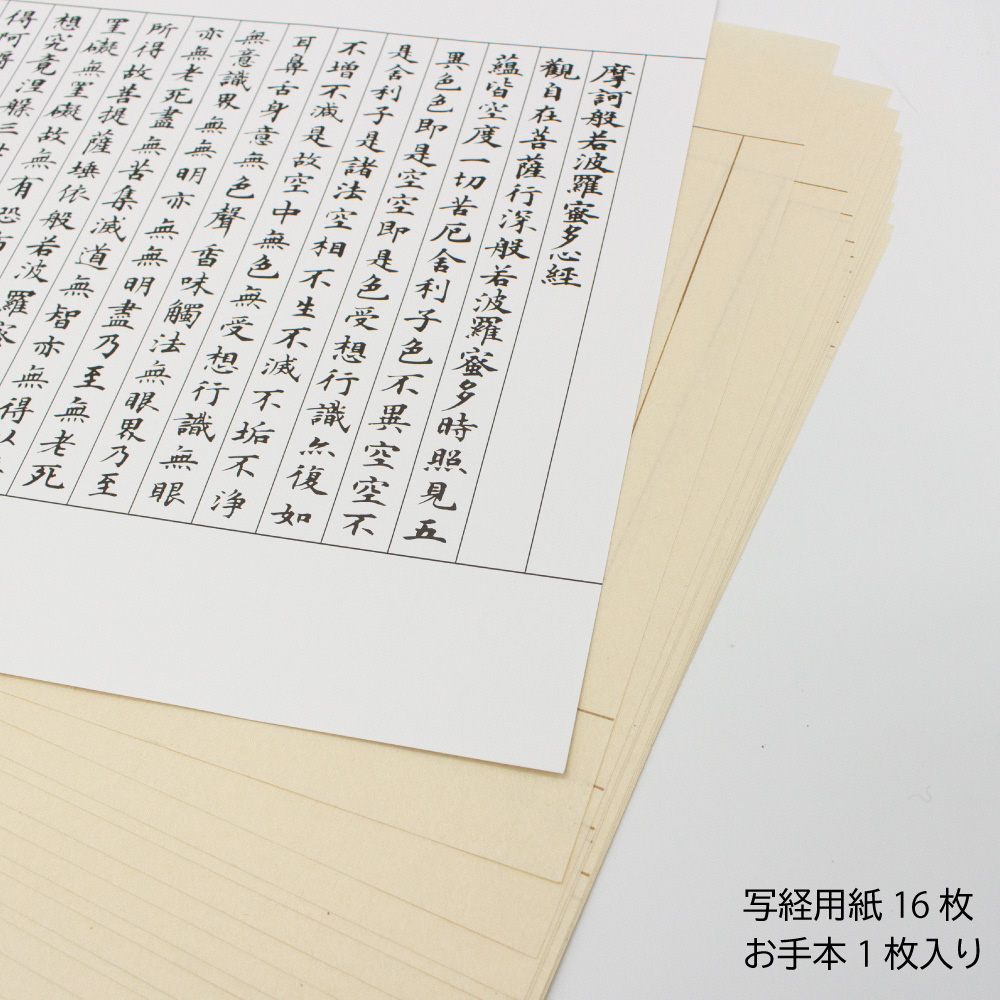 摩訶般若波羅蜜多心經
觀自在菩薩行深般若波羅蜜多時照見五
蘊皆空度一切苦厄舍利子色不異空空不
異色色即是空空即是色受想行識亦復如
是舍利子是諸法空相不生不滅不垢不淨
不增不減是故空中無色無受想行識無眼
耳鼻舌身意無色聲香味觸法無眼界乃至
無意識界無無明亦無無明盡乃至無老死
亦無老死盡無苦集滅道無智亦無得以
所得故菩提薩埵依般若波羅蜜
罣礙無罣礙故無有恐
想究竟涅槃三
得阿耨
写経用紙 16 枚
お手本 1 枚入り